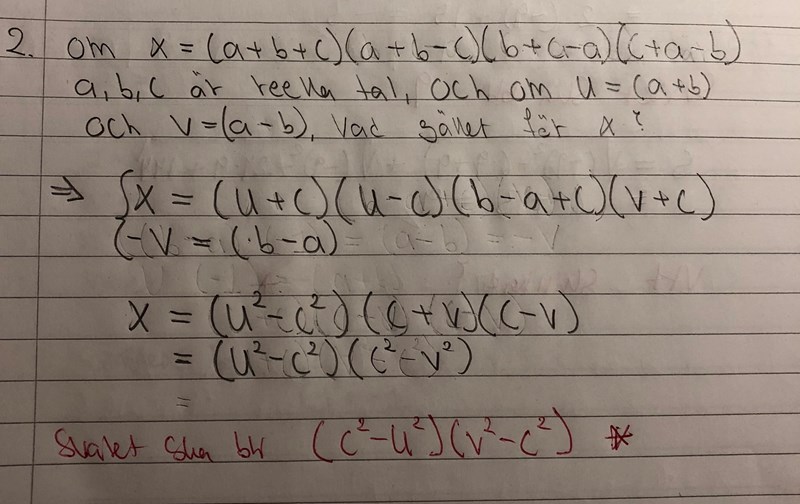 2. om x = (a+b+c)(a+b-c)(b+c-a)(c+a-b)
a, b, c är reella tal, och om u = (a+b)
och v=(a-b), vad gäller för x?
⇒ {x = (u+c)(u-c)(b-a+c)(v+c)
{-v = (b-a)
x = (u²-c²)(c+v)(c-v)
= (u²-c²)(c²-v²)
=
Svaret ska bli (c²-u²)(v²-c²) *